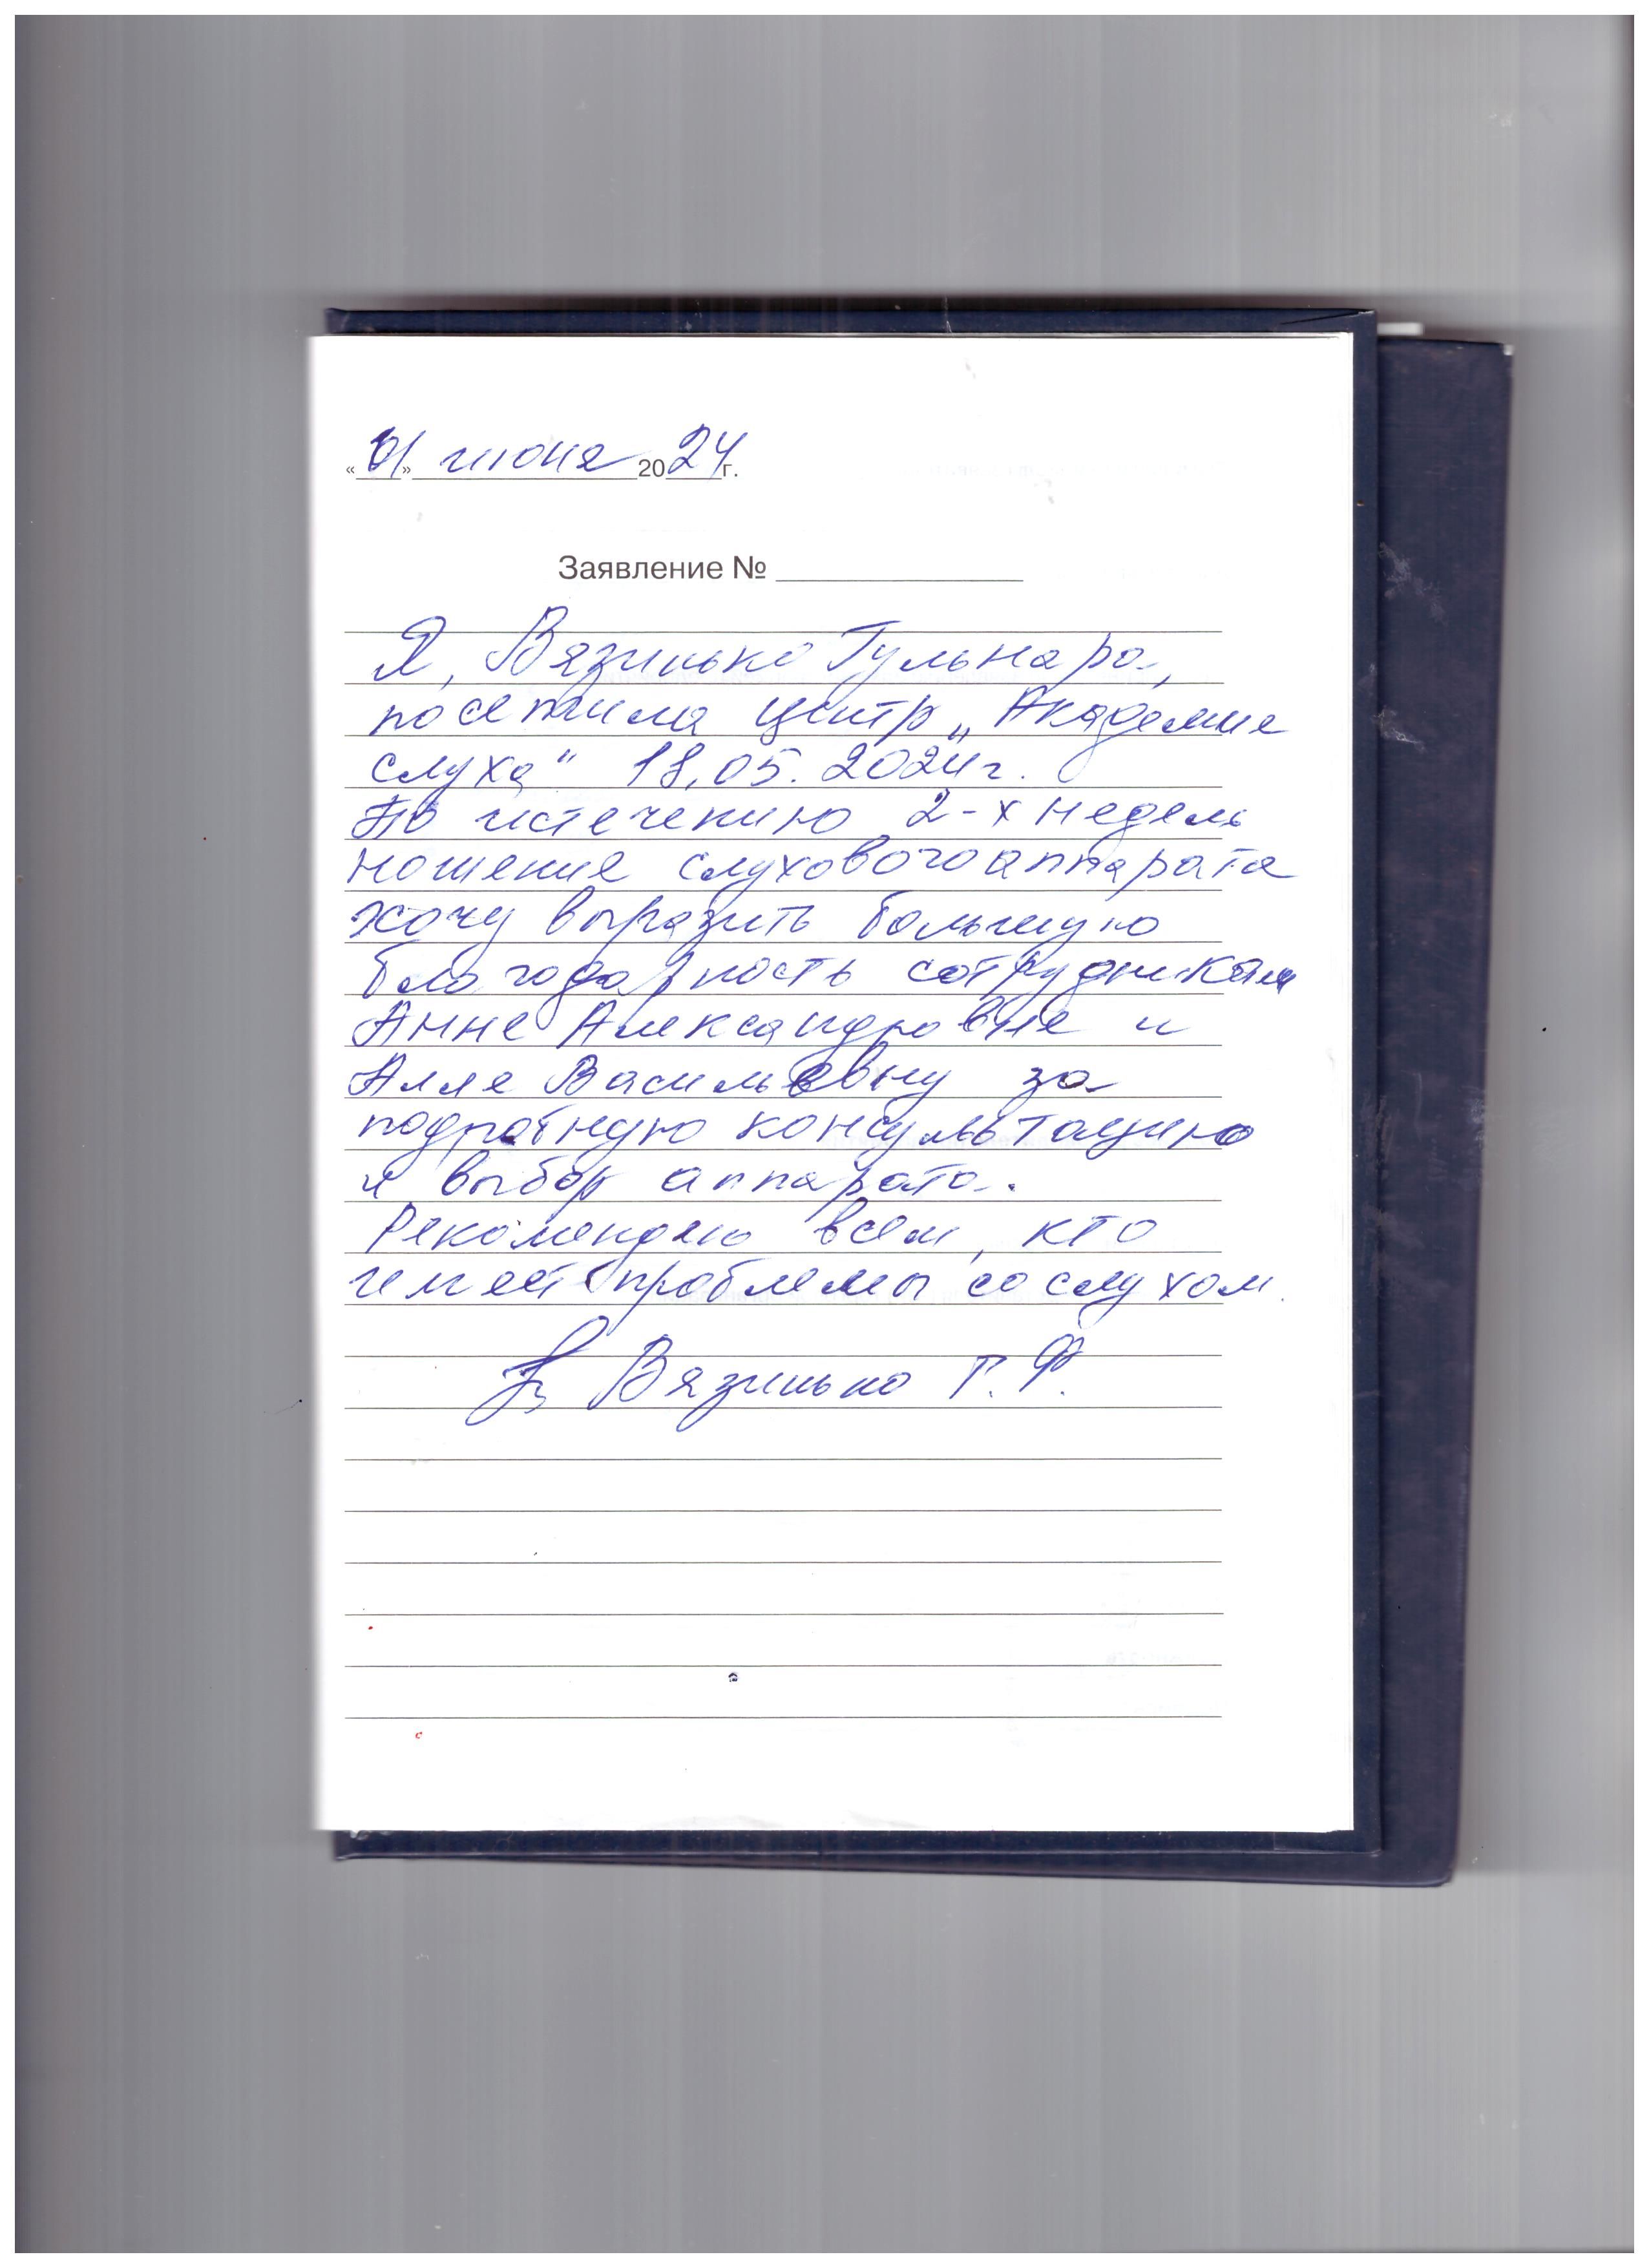 «01» июня 2024г.
Заявление №
Я, Вязинько Гульнара,
посетила центр „Академие
слуха" 18.05.2024г.
По истечению 2-х недель
ношение слухового аппарата
хочу выразить большую
благодарность сотрудникам
Анне Александровне и
Алле Васильевну за
подробную консультацию
и выбор аппарата.
Рекомендую всем, кто
имеет проблемы со слухом.
Вязинько Г.Ф.